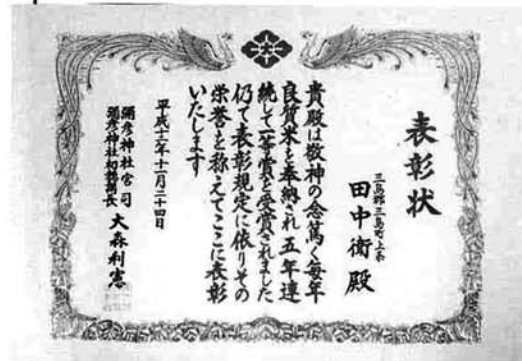 表彰状
三島郡三島町上条
田中衛殿
貴殿は敬神の念篤く毎年
良質米を奉納され五年連
続して一等賞を受賞されました
仍て表彰規定に依りその
栄誉を称えてここに表彰
いたします
平成十二年十一月二十四日
彌彦神社宮司
彌彦神社初穂講長
大森利憲